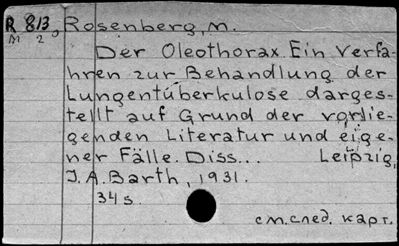 R 813, Rosenberg, M.
M 2
Der Oleothorax. Ein Verfa-
hren zur Behandlung der
Lungentuberkulose darges-
tellt auf Grund der vorlie-
genden Literatur und eige-
ner Fälle. Diss... Leipzig,
J. A. Barth, 1931.
34 s.
см. след. карт.